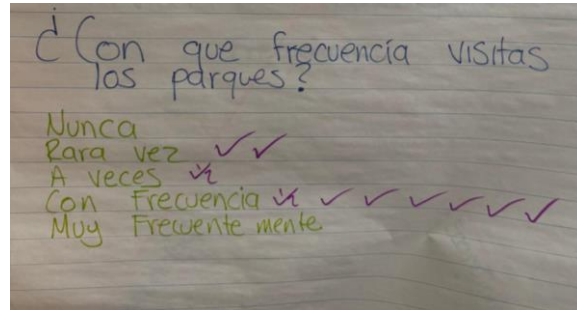 ¿Con que frecuencia visitas
los parques?
Nunca
Rara vez ✓ ✓
A veces
Con Frecuencia ✓ ✓ ✓ ✓ ✓ ✓
Muy Frecuente mente